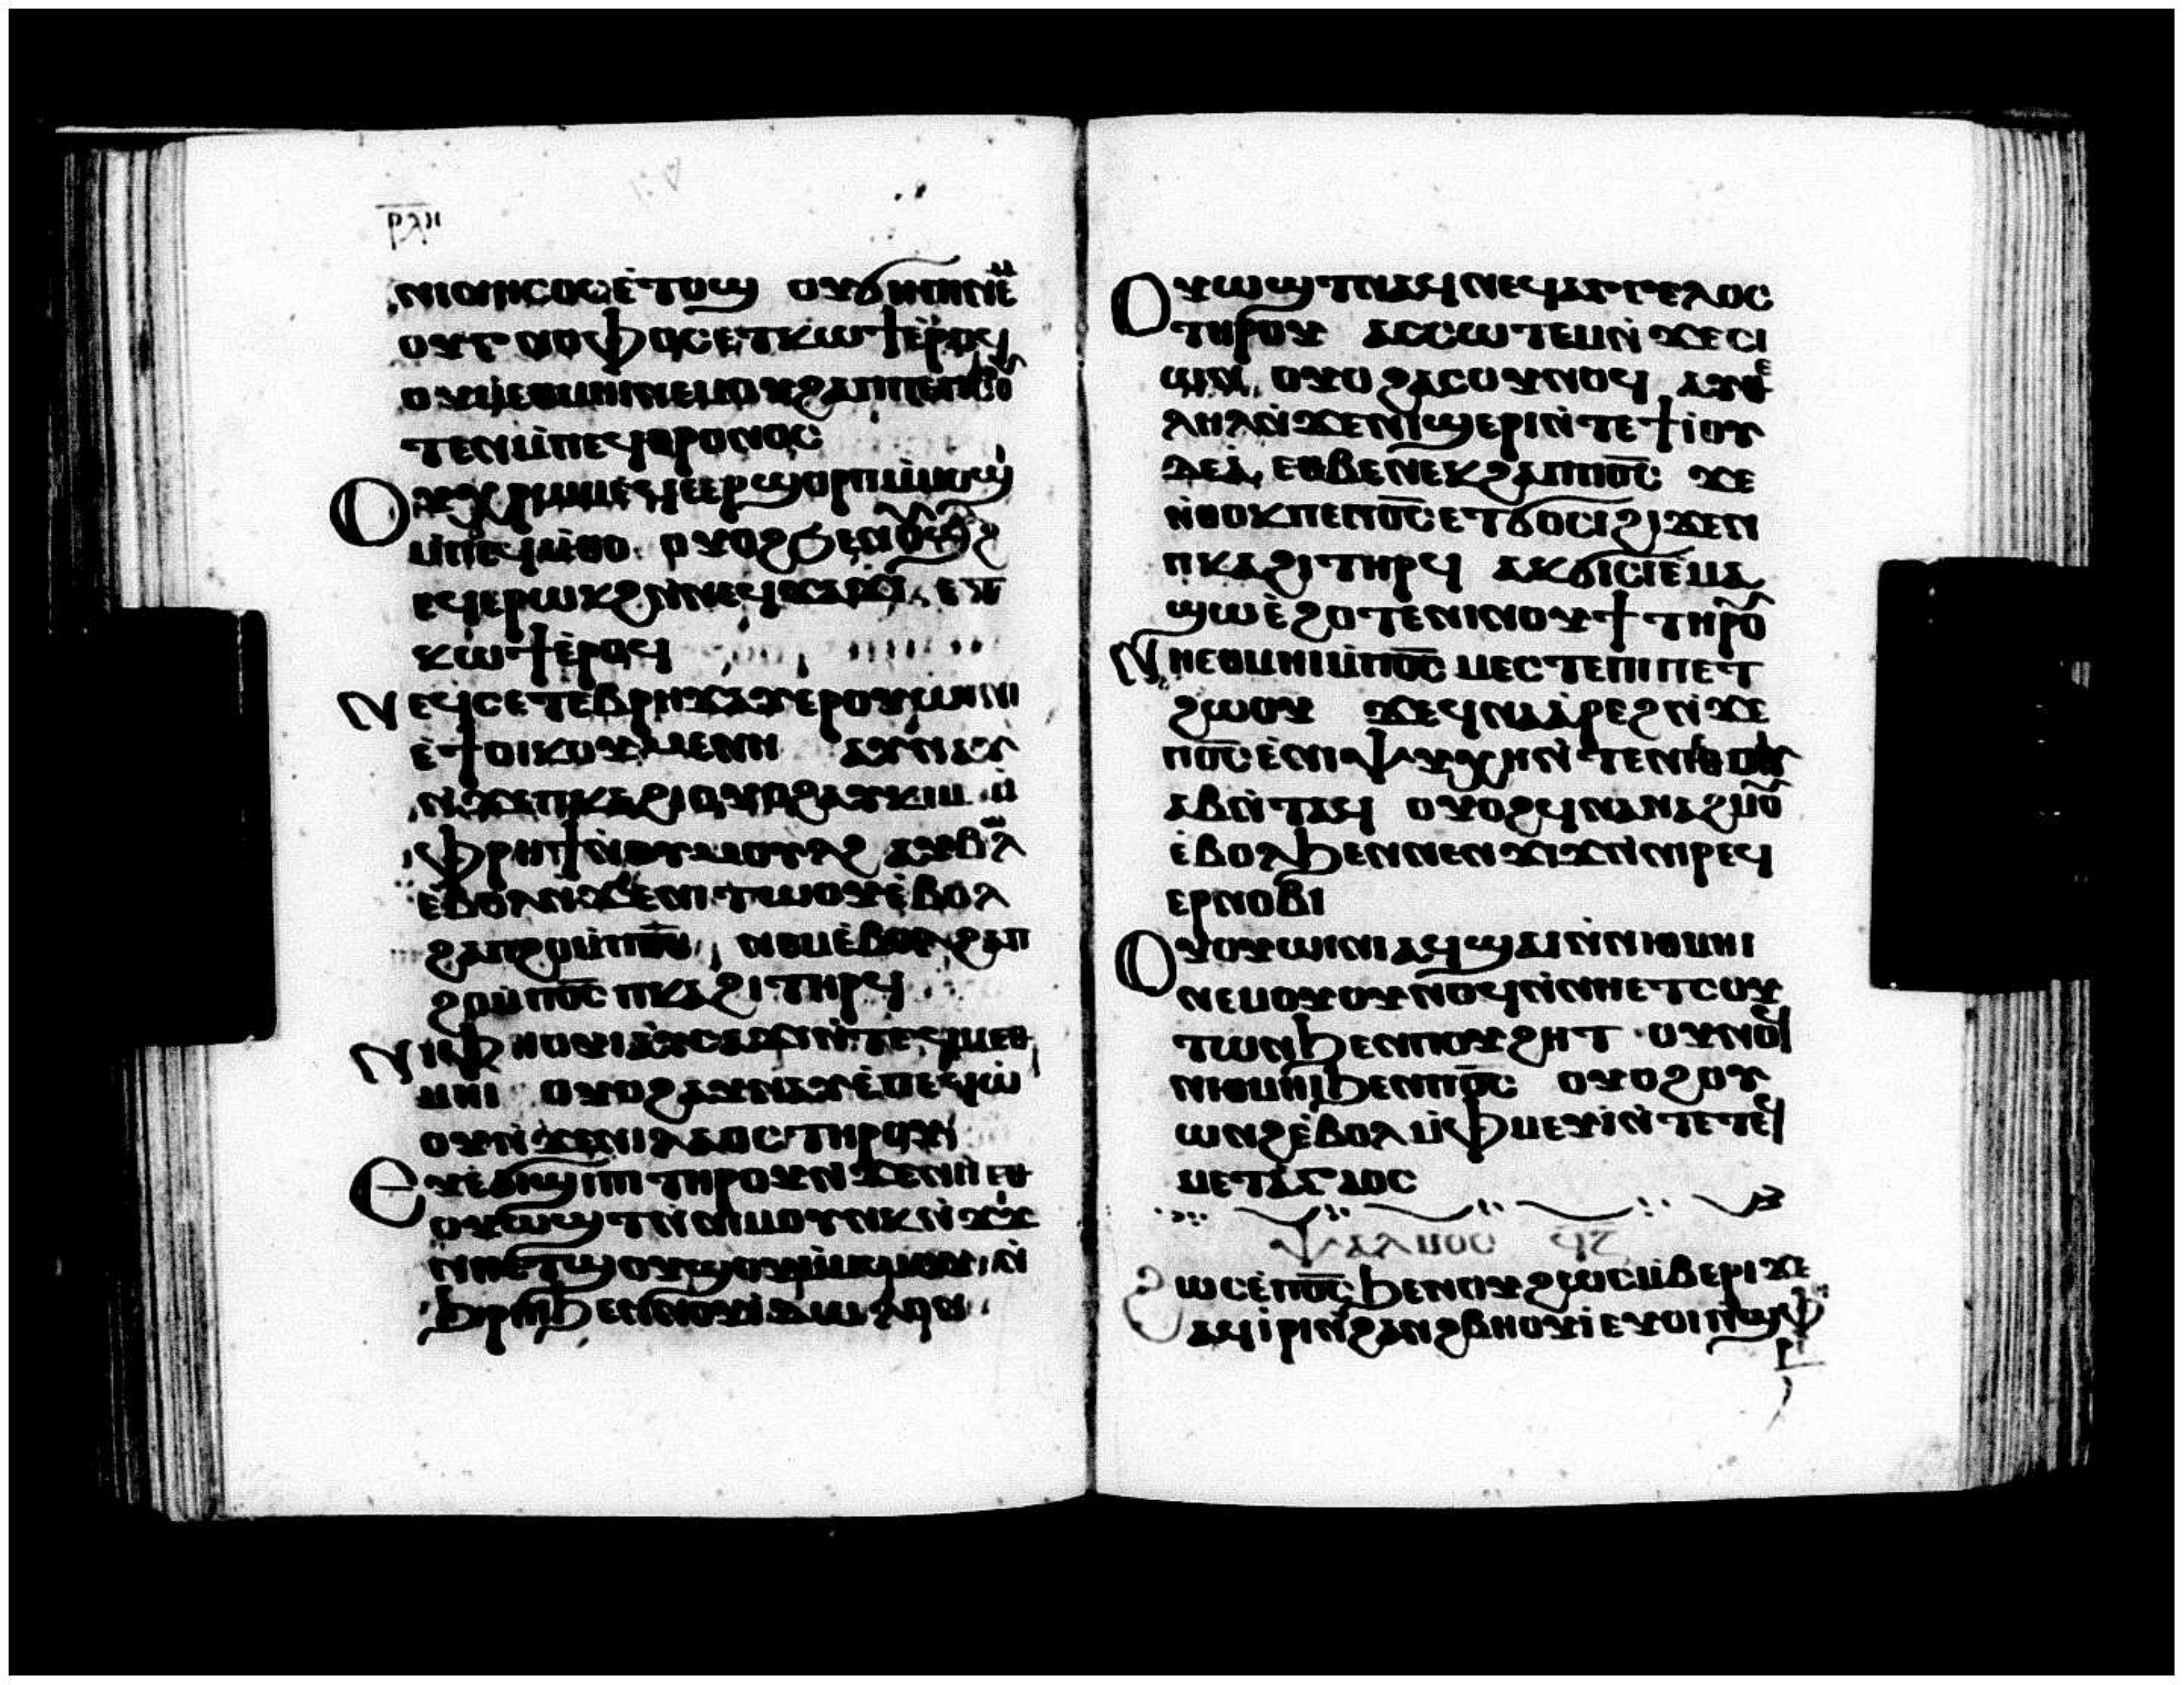 ⲣⲗⲏ
ⲛⲓⲛⲏⲥⲟⲥⲉ̀ⲧⲟϣ ⲟⲩϭⲏⲡⲓⲛⲉⲙ
ⲟⲩⲅⲛⲟⲫⲟⲥⲉⲧⲕⲱϯⲉ̀ⲣⲟϥ
ⲟⲩⲙⲉⲑⲙⲏⲓⲛⲉⲙⲟⲩϩⲁⲡⲡⲉⲡⲥⲟ
ⲧⲉⲛⲙ̀ⲡⲉϥⲑⲣⲟⲛⲟⲥ
ⲟⲩⲭⲣⲱⲙⲉϥⲉⲉⲣϣⲟⲣⲡⲙ̀ⲙⲟϣⲓ
ⲙ̀ⲡⲉϥⲙ̀ⲑⲟ ⲟⲩⲟϩ
ⲉϥⲉⲣⲱⲕϩⲛ̀ⲛⲉϥϫⲁϫⲓ ⲉⲧ
ⲕⲱϯⲉ̀ⲣⲟϥ
ⲛⲉϥⲥⲉⲧⲉⲃⲣⲏϫⲁⲩⲉⲣⲟⲩⲱⲓⲛⲓ
ⲉ̀ϯⲟⲓⲕⲟⲩⲙⲉⲛⲏ ⲁⲩⲛⲁⲩ
ⲛ̀ϫⲉⲡⲕⲁϩⲓⲟⲩⲟϩⲁⲩⲕⲓⲙ ⲙ̀
ⲫⲣⲏϯⲛ̀ⲟⲩⲙⲟⲩⲗϩ ⲁⲩⲃⲱⲗ
ⲉⲃⲟⲗⲛ̀ϫⲉⲛⲓⲧⲱⲟⲩⲉ̀ⲃⲟⲗ
ϩⲁⲡϩⲟⲙ̀ⲡⲟ̅ⲥ̅ ⲛⲉⲙⲉ̀ⲃⲟⲗϩⲁⲡ
ϩⲟⲙ̀ⲡⲟ̅ⲥ̅ ⲡⲕⲁϩⲓⲧⲏⲣϥ
ⲛⲓⲫⲏⲟⲩⲓⲁⲩⲥⲁϫⲓⲛ̀ⲧⲉϥⲙⲉⲑ
ⲙⲏⲓ ⲟⲩⲟϩⲁⲩⲛⲁⲩⲉ̀ⲡⲉϥⲱ̀
ⲟⲩⲛ̀ϫⲉⲛⲓⲗⲁⲟⲥⲧⲏⲣⲟⲩ
ⲉⲩⲉ̀ϭⲓϣⲓⲡⲓⲧⲏⲣⲟⲩⲛ̀ϫⲉⲛⲏⲉⲑ
ⲟⲩⲱϣⲧⲛ̀ⲛⲓⲙⲟⲩⲛⲕⲛ̀ϫⲓϫ
ⲛⲏⲉⲧϣⲟⲩϣⲟⲩⲙ̀ⲙⲱⲟⲩ ⲛ̀
ϧⲣⲏⲓϧⲉⲛⲛⲟⲩⲓⲇⲱⲗⲟⲛ
ⲟⲩⲱϣⲧⲛⲁϥⲛⲉϥⲁⲅⲅⲉⲗⲟⲥ
ⲧⲏⲣⲟⲩ ⲁⲥⲥⲱⲧⲉⲙⲛ̀ϫⲉⲥⲓ
ⲱⲛ ⲟⲩⲟϩⲁⲥⲟⲩⲛⲟϥ ⲁⲩⲑⲉ
ⲗⲏⲗⲛ̀ϫⲉⲛⲓϣⲉⲣⲓⲛ̀ⲧⲉϯⲓⲟⲩ
ⲇⲉⲁ̀ ⲉⲑⲃⲉⲛⲉⲕϩⲁⲡⲡⲟ̅ⲥ̅ ϫⲉ
ⲛ̀ⲑⲟⲕⲡⲉⲡⲟ̅ⲥ̅ⲉⲧϭⲟⲥⲓϩⲓϫⲉⲛ
ⲡⲕⲁϩⲓⲧⲏⲣϥ ⲁⲕϭⲓⲥⲓⲉ̀ⲙⲁ
ϣⲱⲉ̀ϩⲟⲧⲉⲛⲓⲛⲟⲩϯⲧⲏⲣⲟⲩ
ⲛⲏⲉⲑⲙⲏⲓⲙ̀ⲡⲟ̅ⲥ̅ ⲙⲉⲥⲧⲉⲡⲓⲡⲉⲧ
ϩⲱⲟⲩ ϫⲉϥⲛⲁⲁ̀ⲣⲉϩⲛ̀ϫⲉ
ⲡⲟ̅ⲥ̅ⲉ̀ⲛⲓⲯⲩⲭⲏⲛ̀ⲧⲉⲛⲏⲉⲑⲟⲩ
ⲁⲃⲛ̀ⲧⲁϥ ⲟⲩⲟϩϥⲛⲁⲛⲁϩⲙⲟⲩ
ⲉ̀ⲃⲟⲗϧⲉⲛⲛⲉⲛϫⲓϫⲛ̀ⲛⲓⲣⲉϥ
ⲉⲣⲛⲟⲃⲓ
ⲟⲩⲟⲩⲱⲓⲛⲓⲁϥϣⲁⲓⲛ̀ⲛⲓⲑⲙⲏⲓ
ⲛⲉⲙⲟⲩⲟⲩⲛⲟϥⲛ̀ⲛⲏⲉⲧⲥⲟⲩ
ⲧⲱⲛϧⲉⲛⲡⲟⲩϩⲏⲧ ⲟⲩⲛⲟϥ
ⲛⲓⲑⲙⲏⲓϧⲉⲛⲡⲟ̅ⲥ̅ ⲟⲩⲟϩⲟⲩ
ⲱⲛϩⲉ̀ⲃⲟⲗⲙ̀ⲫⲙⲉⲩⲓ̀ⲛ̀ⲧⲉⲧⲉϥ
ⲙⲉⲧⲁⲅⲓⲟⲥ
ⲯⲁⲗⲙⲟⲥ ϥⲍ
ϩⲱⲥⲉ̀ⲡⲟ̅ⲥ̅ϧⲉⲛⲟⲩϩⲱⲥⲙ̀ⲃⲉⲣⲓϫⲉ
ⲁϥⲓ̀ⲣⲓⲛ̀ϩⲁⲛϩⲃⲏⲟⲩⲓ̀ⲉⲩⲟⲓⲛ̀ϣⲫ
ⲣⲓ